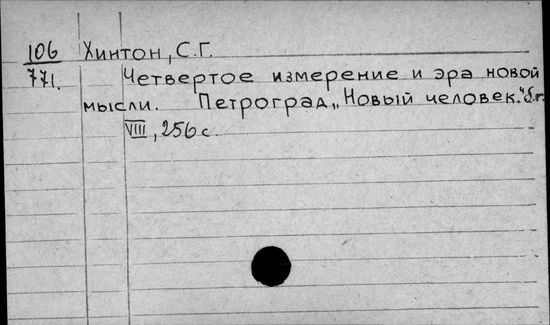 106 Хинтон, С.Г.
771. Четвертое измерение и эра новой
мысли. Петроград, „Новый человек." б.г.
VIII, 256 с.